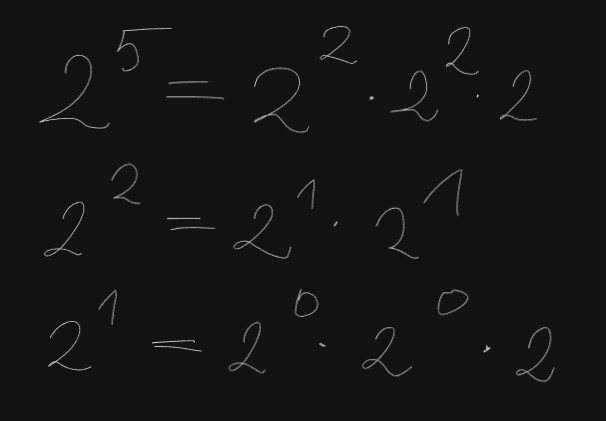 2⁵ = 2² · 2² · 2
2² = 2¹ · 2¹
2¹ = 2⁰ · 2⁰ · 2